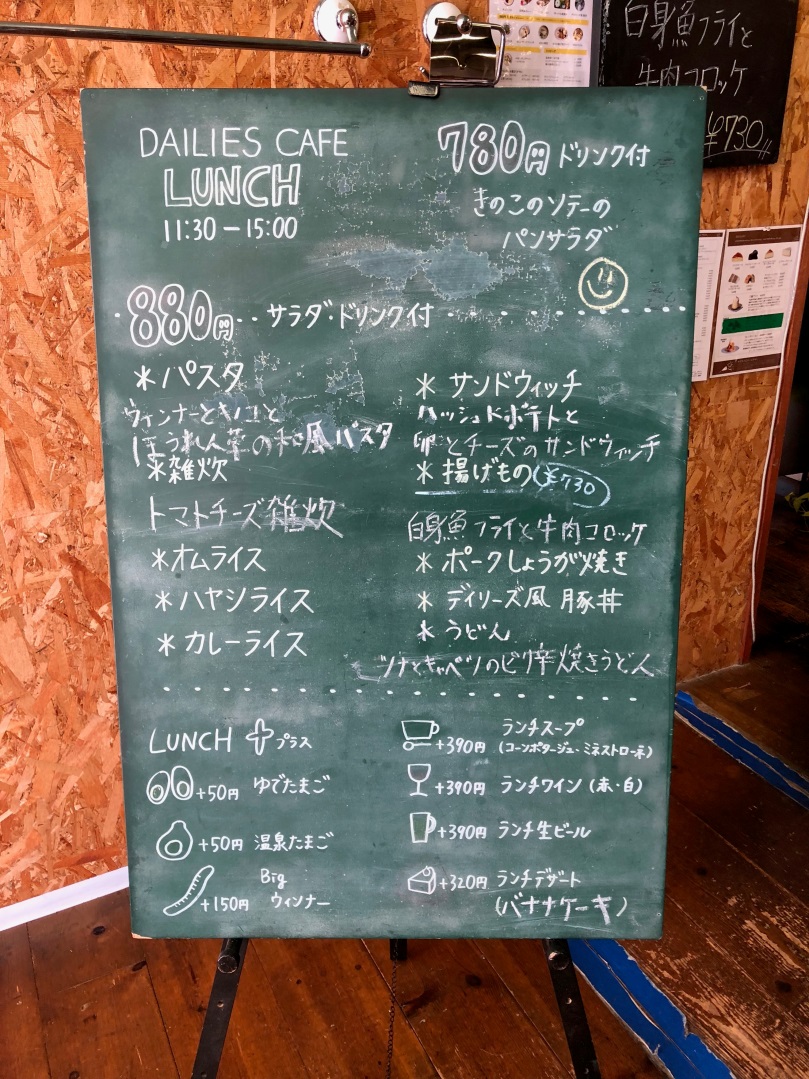 DAILIES CAFE
LUNCH
11:30 － 15:00
780円 ドリンク付
きのこのソテーの
パンサラダ
880円 サラダ・ドリンク付
＊パスタ
ウィンナーとキノコと
ほうれん草の和風パスタ
＊雑炊
トマトチーズ雑炊
＊オムライス
＊ハヤシライス
＊カレーライス
＊サンドウィッチ
ハッシュドポテトと
卵とチーズのサンドウィッチ
＊揚げもの ¥730
白身魚フライと牛肉コロッケ
＊ポークしょうが焼き
＊デイリーズ風 豚丼
＊うどん
ツナとキャベツのピリ辛焼きうどん
LUNCH ＋プラス
+50円 ゆでたまご
+50円 温泉たまご
+150円 Big ウィンナー
+390円 ランチスープ
(コーンポタージュ・ミネストローネ)
+390円 ランチワイン (赤・白)
+390円 ランチ生ビール
+320円 ランチデザート
(バナナケーキ)
白身魚フライと
牛肉コロッケ
¥730